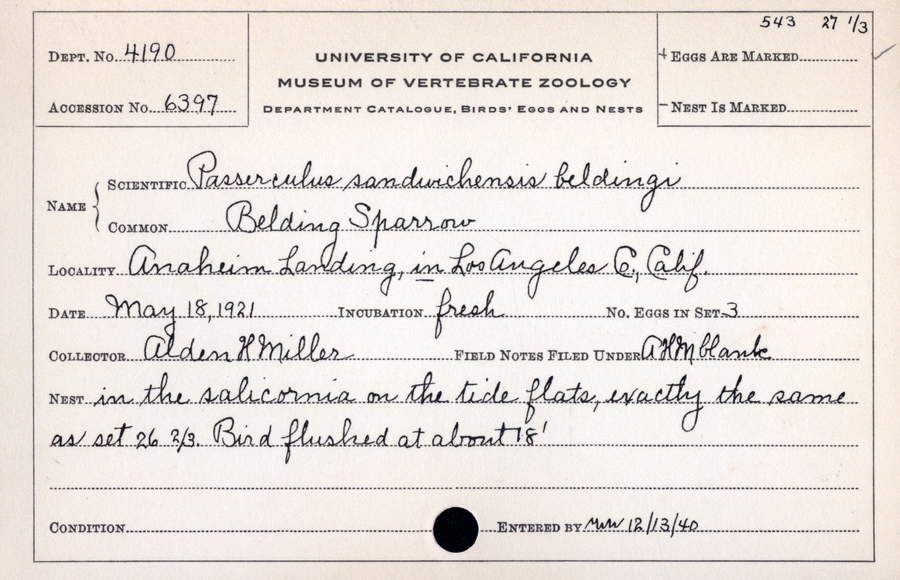 543 27 1/3
Dept. No. 4190
University of California
+ Eggs Are Marked
Museum of Vertebrate Zoology
Accession No. 6397
Department Catalogue, Birds' Eggs and Nests
– Nest Is Marked
Name { Scientific Passerculus sandwichensis beldingi
Common Belding Sparrow
Locality Anaheim Landing, in Los Angeles C., Calif.
Date May 18, 1921 Incubation fresh No. Eggs in Set 3
Collector Alden H Miller Field Notes Filed Under AHM blank
Nest in the salicornia on the tide flats, exactly the same
as set 26 2/3. Bird flushed at about 18'
Condition Entered by 12/13/40